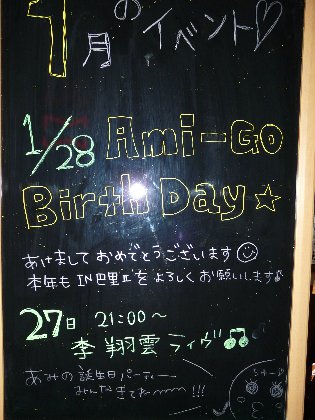 1月のイベント♡
1/28 Ami-Go
Birth Day☆
あけましておめでとうございます☺
本年も IN巴里Ⅱ をよろしくお願いします♪
27日 21:00〜
李翔雲 ライヴ♫
あみの誕生日パーティー
みんなきてね〜〜!!!